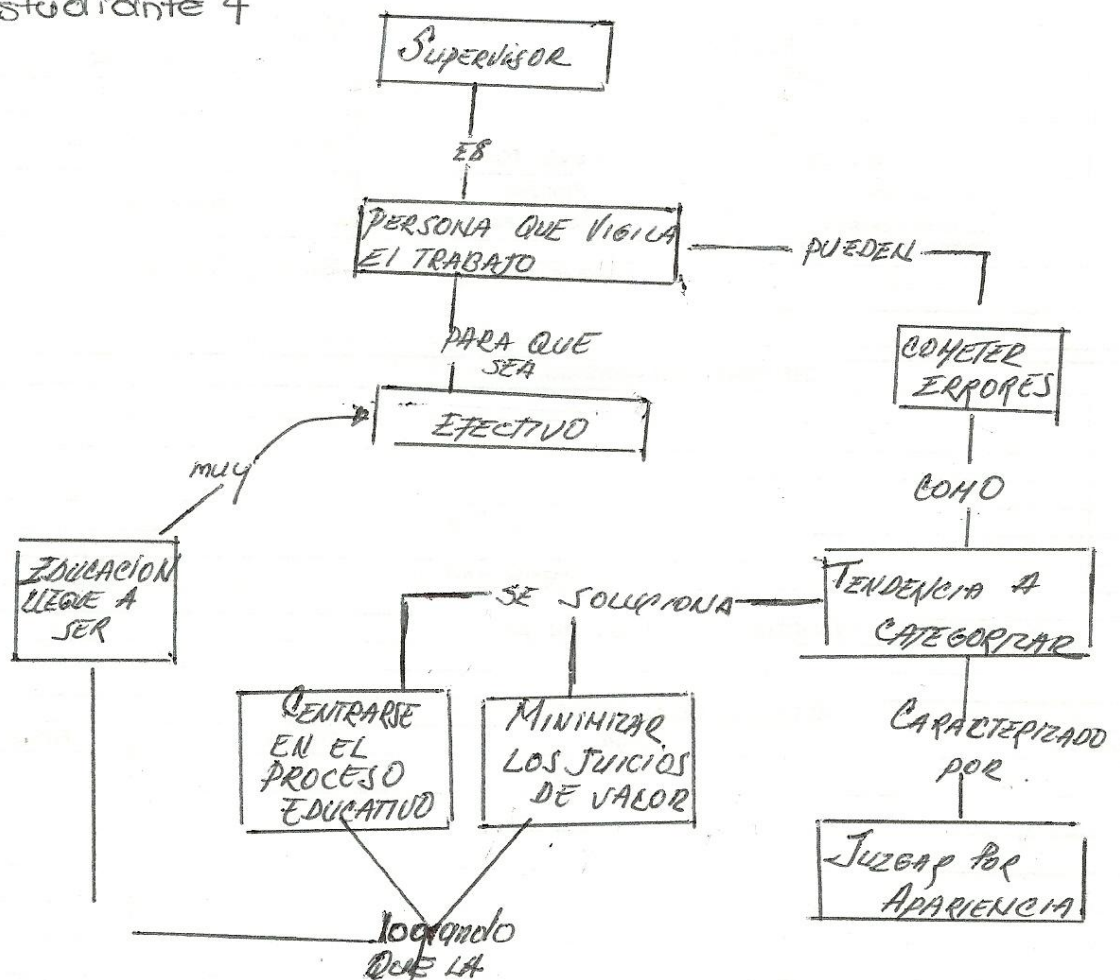 studiante 4
Supervisor
ES
PERSONA QUE VIGILA
El TRABAJO
PUEDEN
PARA QUE
SEA
EFECTIVO
COMETER
ERRORES
muy
COMO
EDUCACION
LLEGUE A
SER
SE SOLUCIONA
TENDENCIA A
CATEGORIZAR
CENTRARSE
EN EL
PROCESO
EDUCATIVO
MINIMIZAR
LOS JUICIOS
DE VALOR
CARACTERIZADO
POR
JUZGAR POR
APARIENCIA
logrando
QUE LA